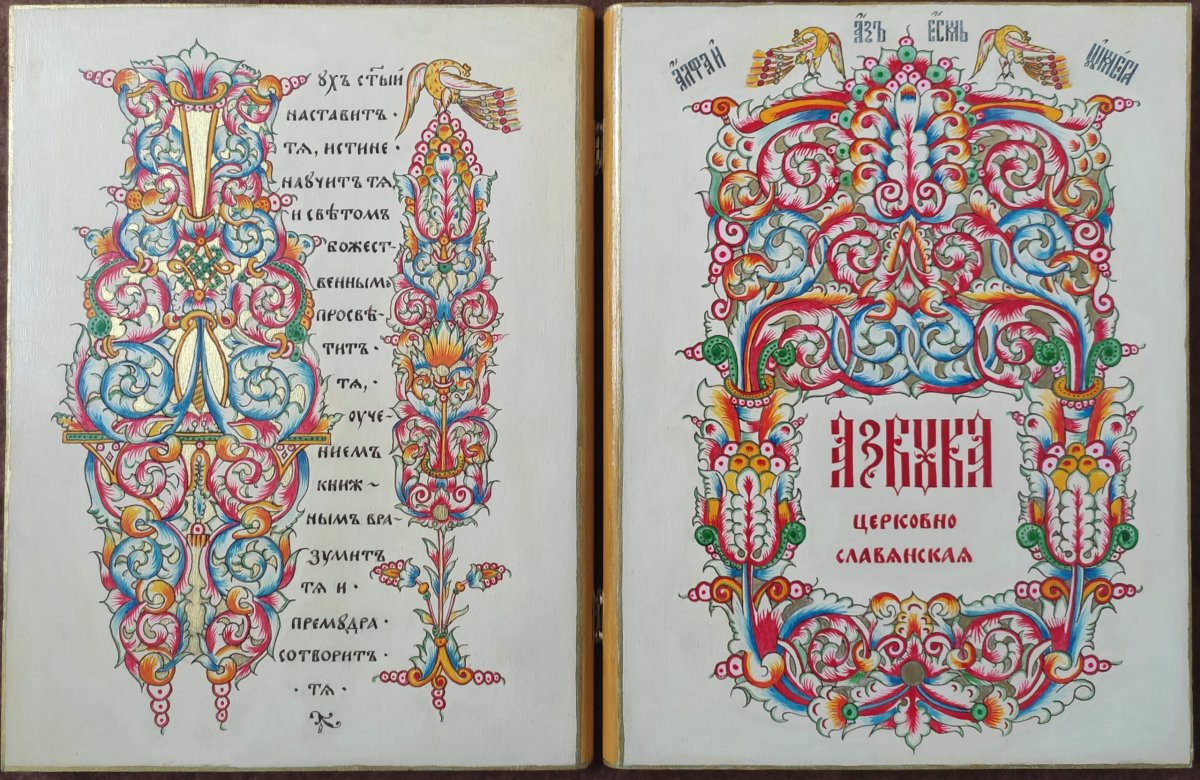 Духъ ст҃ый
наставитъ ·
тѧ, истине ·
научитъ тѧ,
и свѣтомъ
божест-
веннымъ
просвѣ-
титъ ·
тѧ, ·
оуче-
ниемъ
книж~
нымъ вра~
зумитъ
тѧ и ·
премудра ·
сотворитъ ·
· тѧ ·
А҆́зъ є҆́смь
а҆́лфа и҆
ѡ҆ме́га
Азбука
церковно
славянская